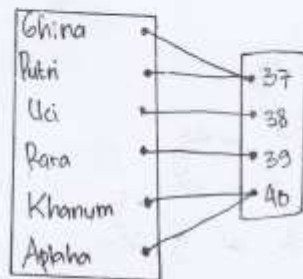 Ghina
Putri
Uci
Rara
Khanum
Aplaha
37
38
39
40